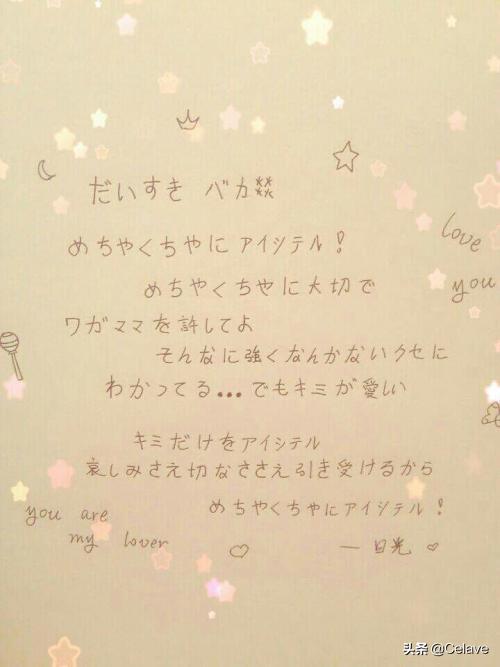 だいすき バカ
love
めちゃくちゃに アイシテル!
you
めちゃくちゃに大切で
ワガママを許してよ
そんなに強くなんかないクセに
わかってる...でもキミが愛しい
キミだけをアイシテル
哀しみさえ切なささえ引き受けるから
めちゃくちゃにアイシテル!
you are
my lover
一日光
头条 @Celave